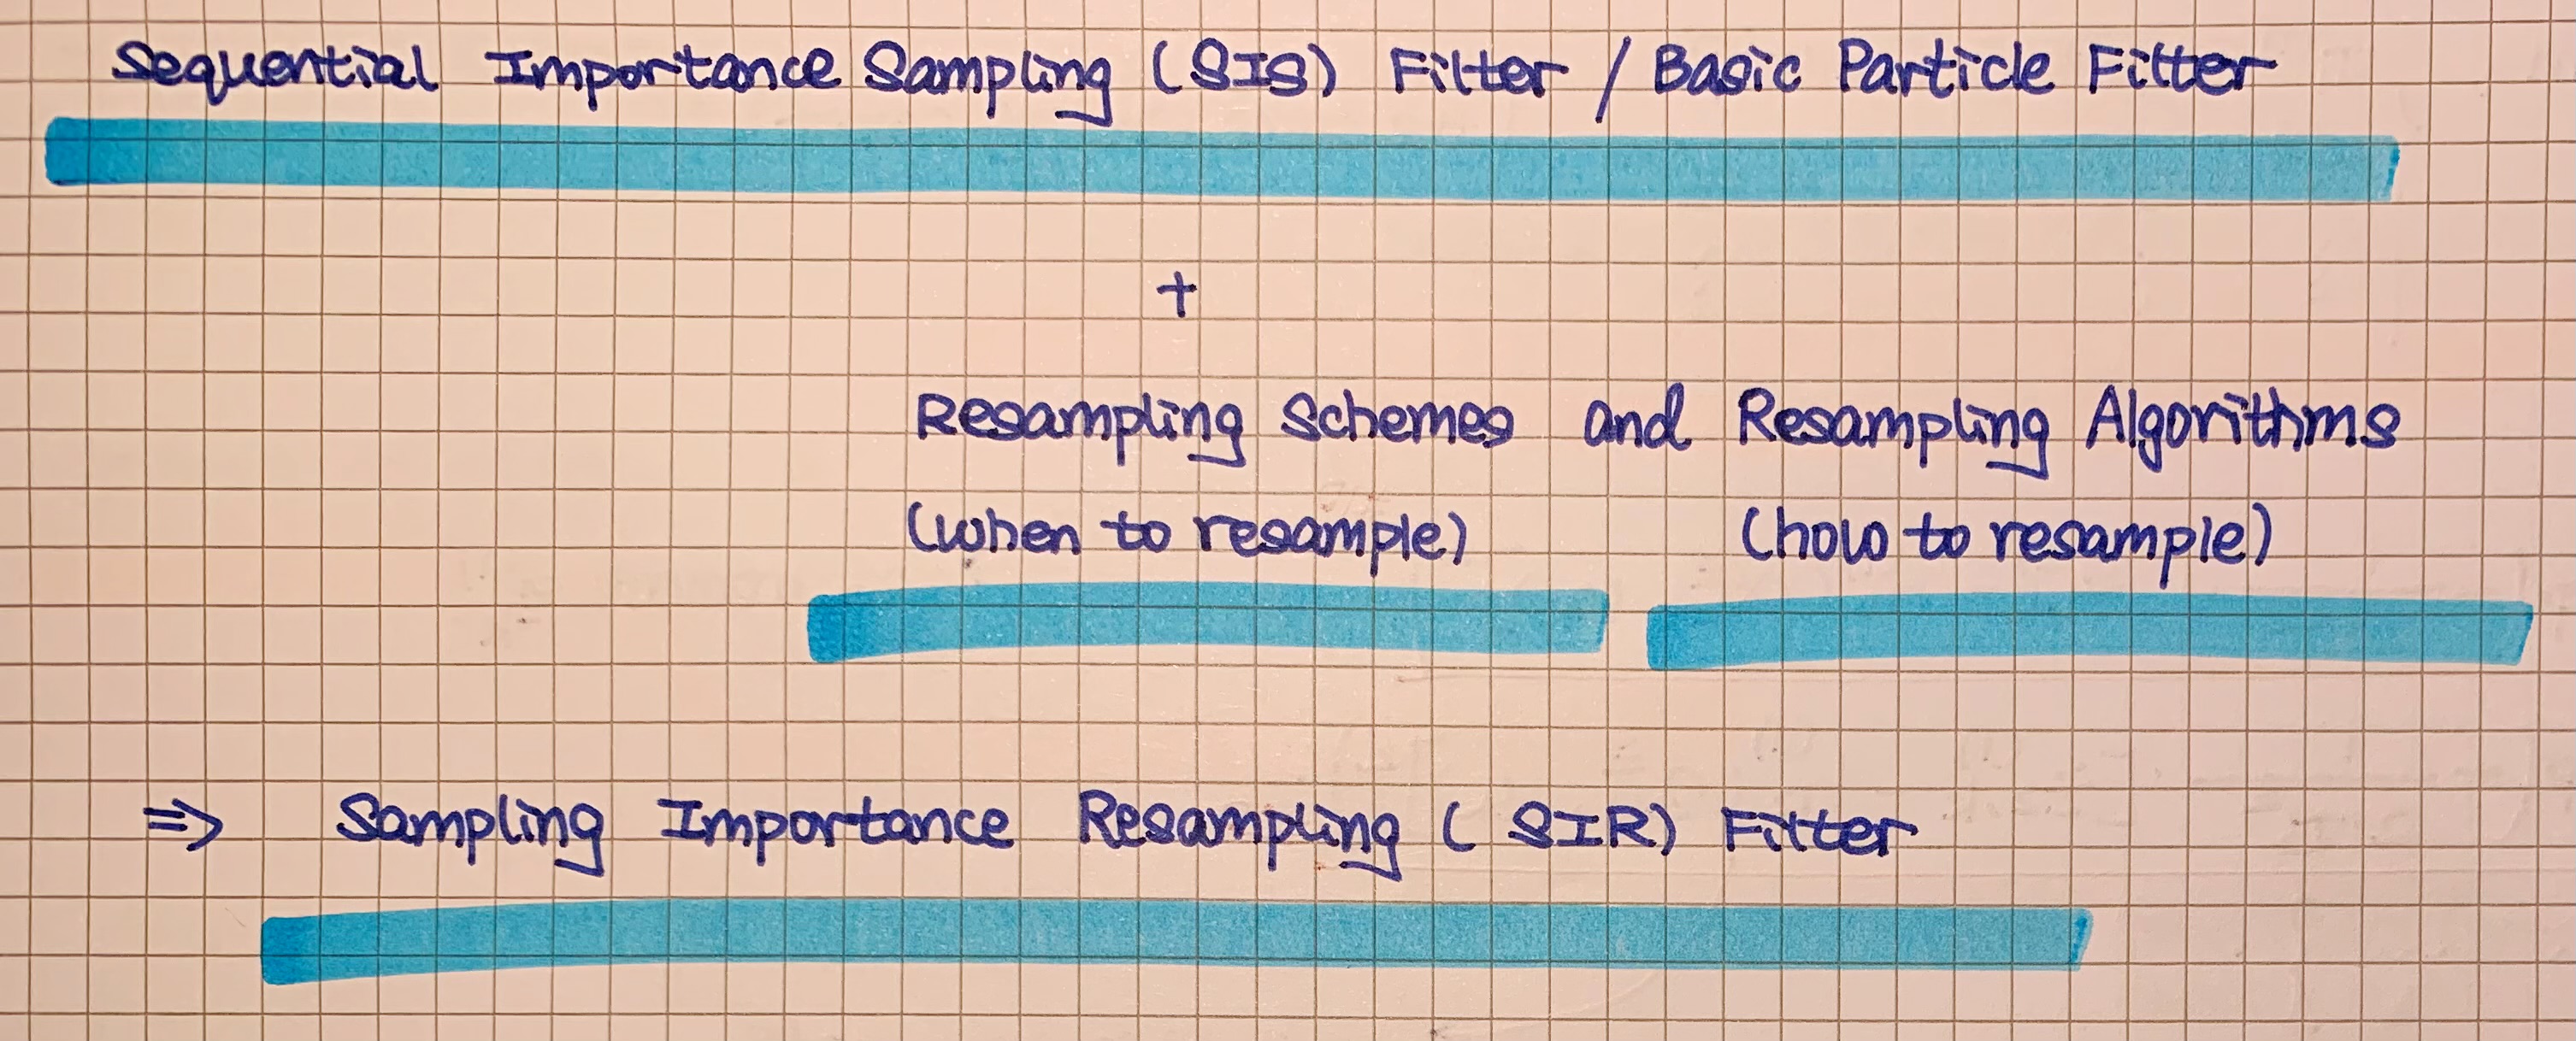 Sequential Importance Sampling (SIS) Filter / Basic Particle Filter
+
Resampling Schemes and Resampling Algorithms
(when to resample) (how to resample)
=> Sampling Importance Resampling (SIR) Filter